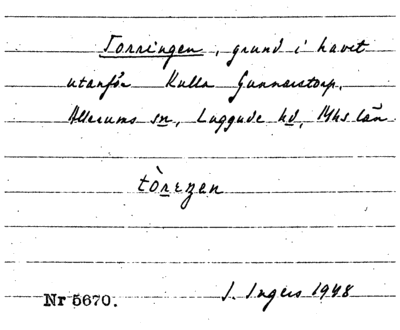 Torringen, grund i havet
utanför Kulla Gunnarstorp.
Allerums sn, Luggude hd, Mhs län
tòreŋen
Nr 5670.
I. Ingers 1948